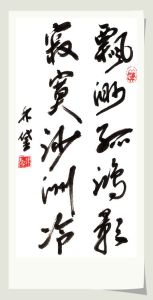 飘渺孤鸿影
寂寞沙洲冷